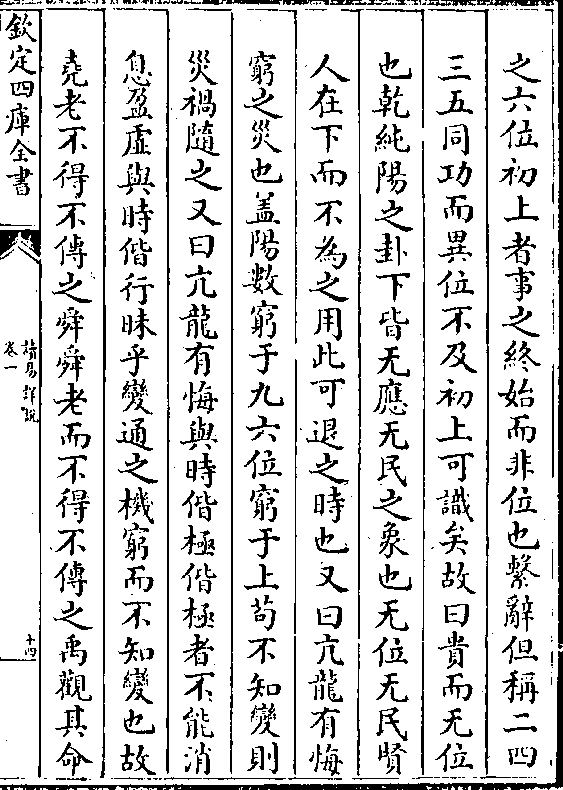 之六位初上者事之終始而非位也繫辭但稱二四
三五同功而異位不及初上可識矣故曰貴而无位
也乾純陽之卦下皆无應无民之象也无位无民賢
人在下而不為之用此可退之時也又曰亢龍有悔
窮之災也盖陽數窮于九六位窮于上茍不知變則
災禍隨之又曰亢龍有悔與時偕極偕極者不能消
息盈虛與時偕行昧乎變通之機窮而不知變也故
堯老不得不傳之舜舜老而不得不傳之禹觀其命
欽定四庫全書
讀易詳說
卷一
十四